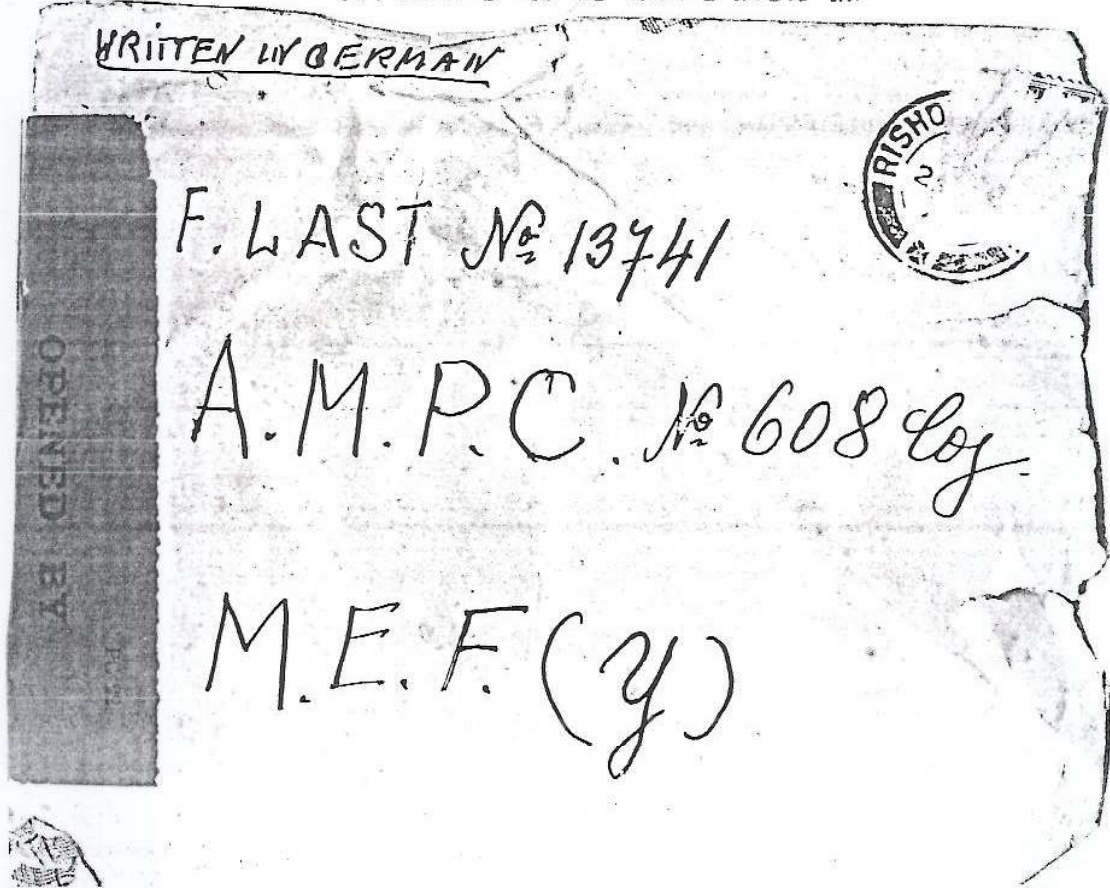 WRIITEN IN GERMAN
RISHO
2
F. LAST № 13741
A.M.P.C. № 608 Coy.
M.E.F. (Y)
OPENED BY